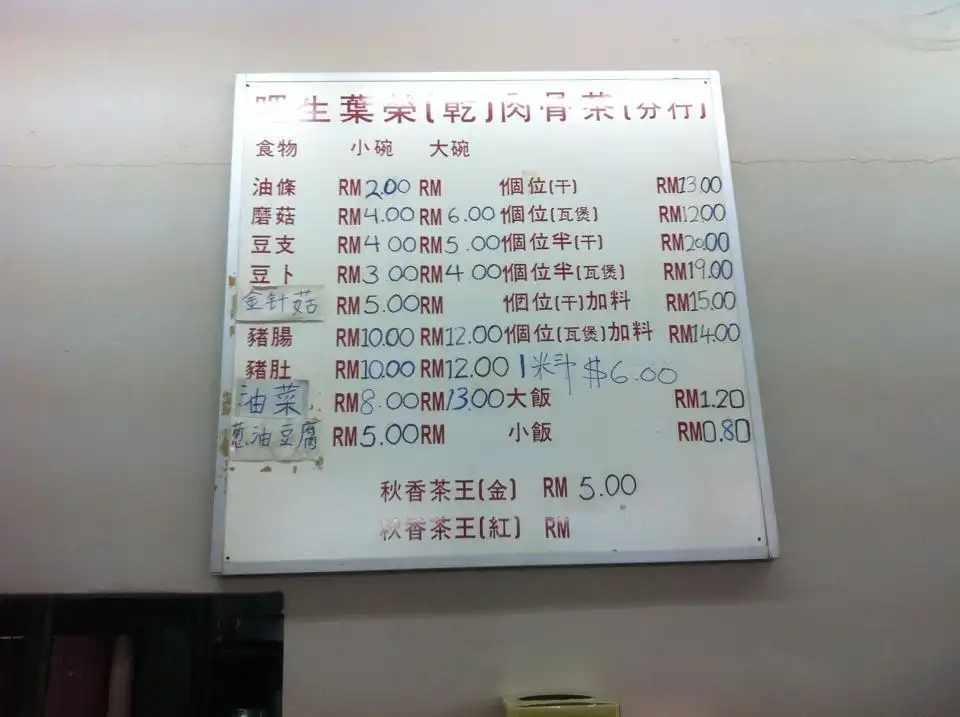 吧生葉榮(乾)肉骨茶(分行)
食物 小碗 大碗
油條 RM2.00 RM 1個位(干) RM13.00
磨菇 RM4.00 RM6.00 1個位(瓦煲) RM12.00
豆支 RM4.00 RM5.00 1個位半(干) RM20.00
豆卜 RM3.00 RM4.00 1個位半(瓦煲) RM19.00
金针菇 RM5.00 RM 1個位(干)加料 RM15.00
豬腸 RM10.00 RM12.00 1個位(瓦煲)加料 RM14.00
豬肚 RM10.00 RM12.00 1 $6.00
油菜 RM8.00 RM13.00 大飯 RM1.20
蔥油豆腐 RM5.00 RM 小飯 RM0.80
秋香茶王(金) RM 5.00
秋香茶王(紅) RM